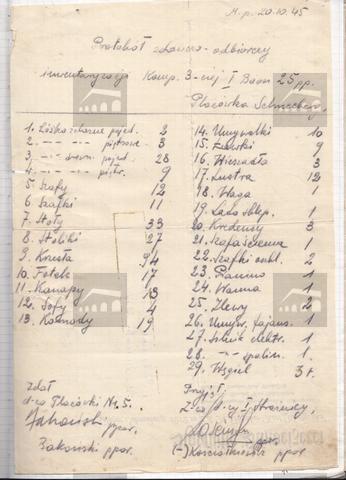 M.p. 20.10.45
Protokół zdawczo-odbiorczy
inwentaryzacji Komp. 3-ciej I Baon 25 pp.
Placówka
1. Łóżka żelazne pojed. 2
2. -"- -"- piętrowe 3
3. -"- drewn. pojed. 28
4. -"- -"- piętr. 9
5. Szafy 12
6. Szafki 11
7. Stoły 33
8. Stoliki 27
9. Krzesła 94
10. Fotele 17
11. Kanapy 13
12. Sofy 4
13. Komody 19
14. Umywalki 10
15. Ławki 9
16. Wieszadła 3
17. Lustra 12
18. Waga 1
19. Lada sklep. 1
20. Kredensy 3
21. 1
22. Szafki 2
23. Pianino 1
24. Wanna 1
25. Zlewy 2
26. Umyw. fajans. 1
27. Silnik elektr. 1
28. -"- spalin. 1
29. Węgiel 3 t.
zdał
d-ca Placówki Nr. 5.
ppor.
Żakowski ppor.
Przyjął
Z-ca d-cy I Strażnicy,
ppor.
(-) ppor.